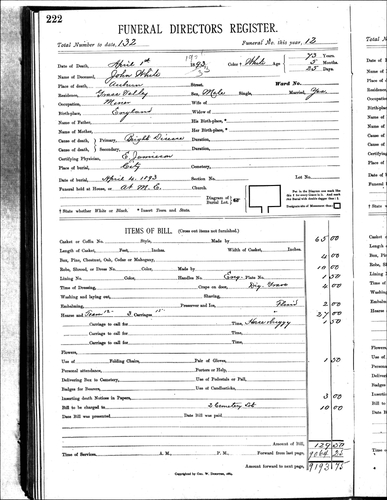 222
FUNERAL DIRECTORS REGISTER.
Total Number to date, 132 Funeral No. this year, 12
Date of Death, April 1st 1893 Color † White Age 73 Years. 5 Months. 25 Days.
Name of Deceased, John White
Place of Death, Auburn Street, Ward No.
Residence, Grass Valley Sex, Male Single, Married, Yes
Occupation, Miner Wife of
Birthplace, England Widow of
Name of Father, His Birthplace, *
Name of Mother, Her Birthplace, *
Cause of death, Primary, Bright Disease Duration,
Cause of death, Secondary, Duration,
Certifying Physician, E. Jamieson
Place of burial, City Cemetery,
Date of burial, April 4, 1893 Section No. Lot No.
Funeral held at House, or At M. E. Church.
Diagram of Burial Lot
† State whether White or Black. * Insert Town and State.
ITEMS OF BILL. (Cross out items not furnished.)
Casket or Coffin No. Style, Made by 65 00
Length of Casket, Feet, Inches. Width of Casket, Inches.
Box, Pine, Chestnut, Oak, Cedar or Mahogany, 4 00
Robe, Shroud, or Dress No. Made by 10 00
Lining No. Color, Handles No. Eng. Plate No. 1 50
Time of Dressing, Crape on door, Dig. Grave 4 00
Washing and laying out, Shaving,
Embalming, Preserver and Ice, 2 00
Hearse and Team 12- 3 Carriages 15- 27 00
Carriage to call for Time, Horse Buggy 1 50
Carriage to call for Time,
Carriage to call for Time,
Flowers,
Use of Folding Chairs, Pair of Gloves, 1 50
Personal attendance, Porters or Help,
Delivering Box to Cemetery, Use of Pedestals or Pall,
Badges for Bearers, Use of Candlesticks,
Inserting death Notices in Papers, 3 00
Bill to be charged to 2 Cemetery Lot 10 00
Date Bill was presented Date Bill was paid.
Amount of Bill, 129 50
Time of Services A. M., P. M. Forward from last page, 9064 25
Amount forward to next page, 9193 75